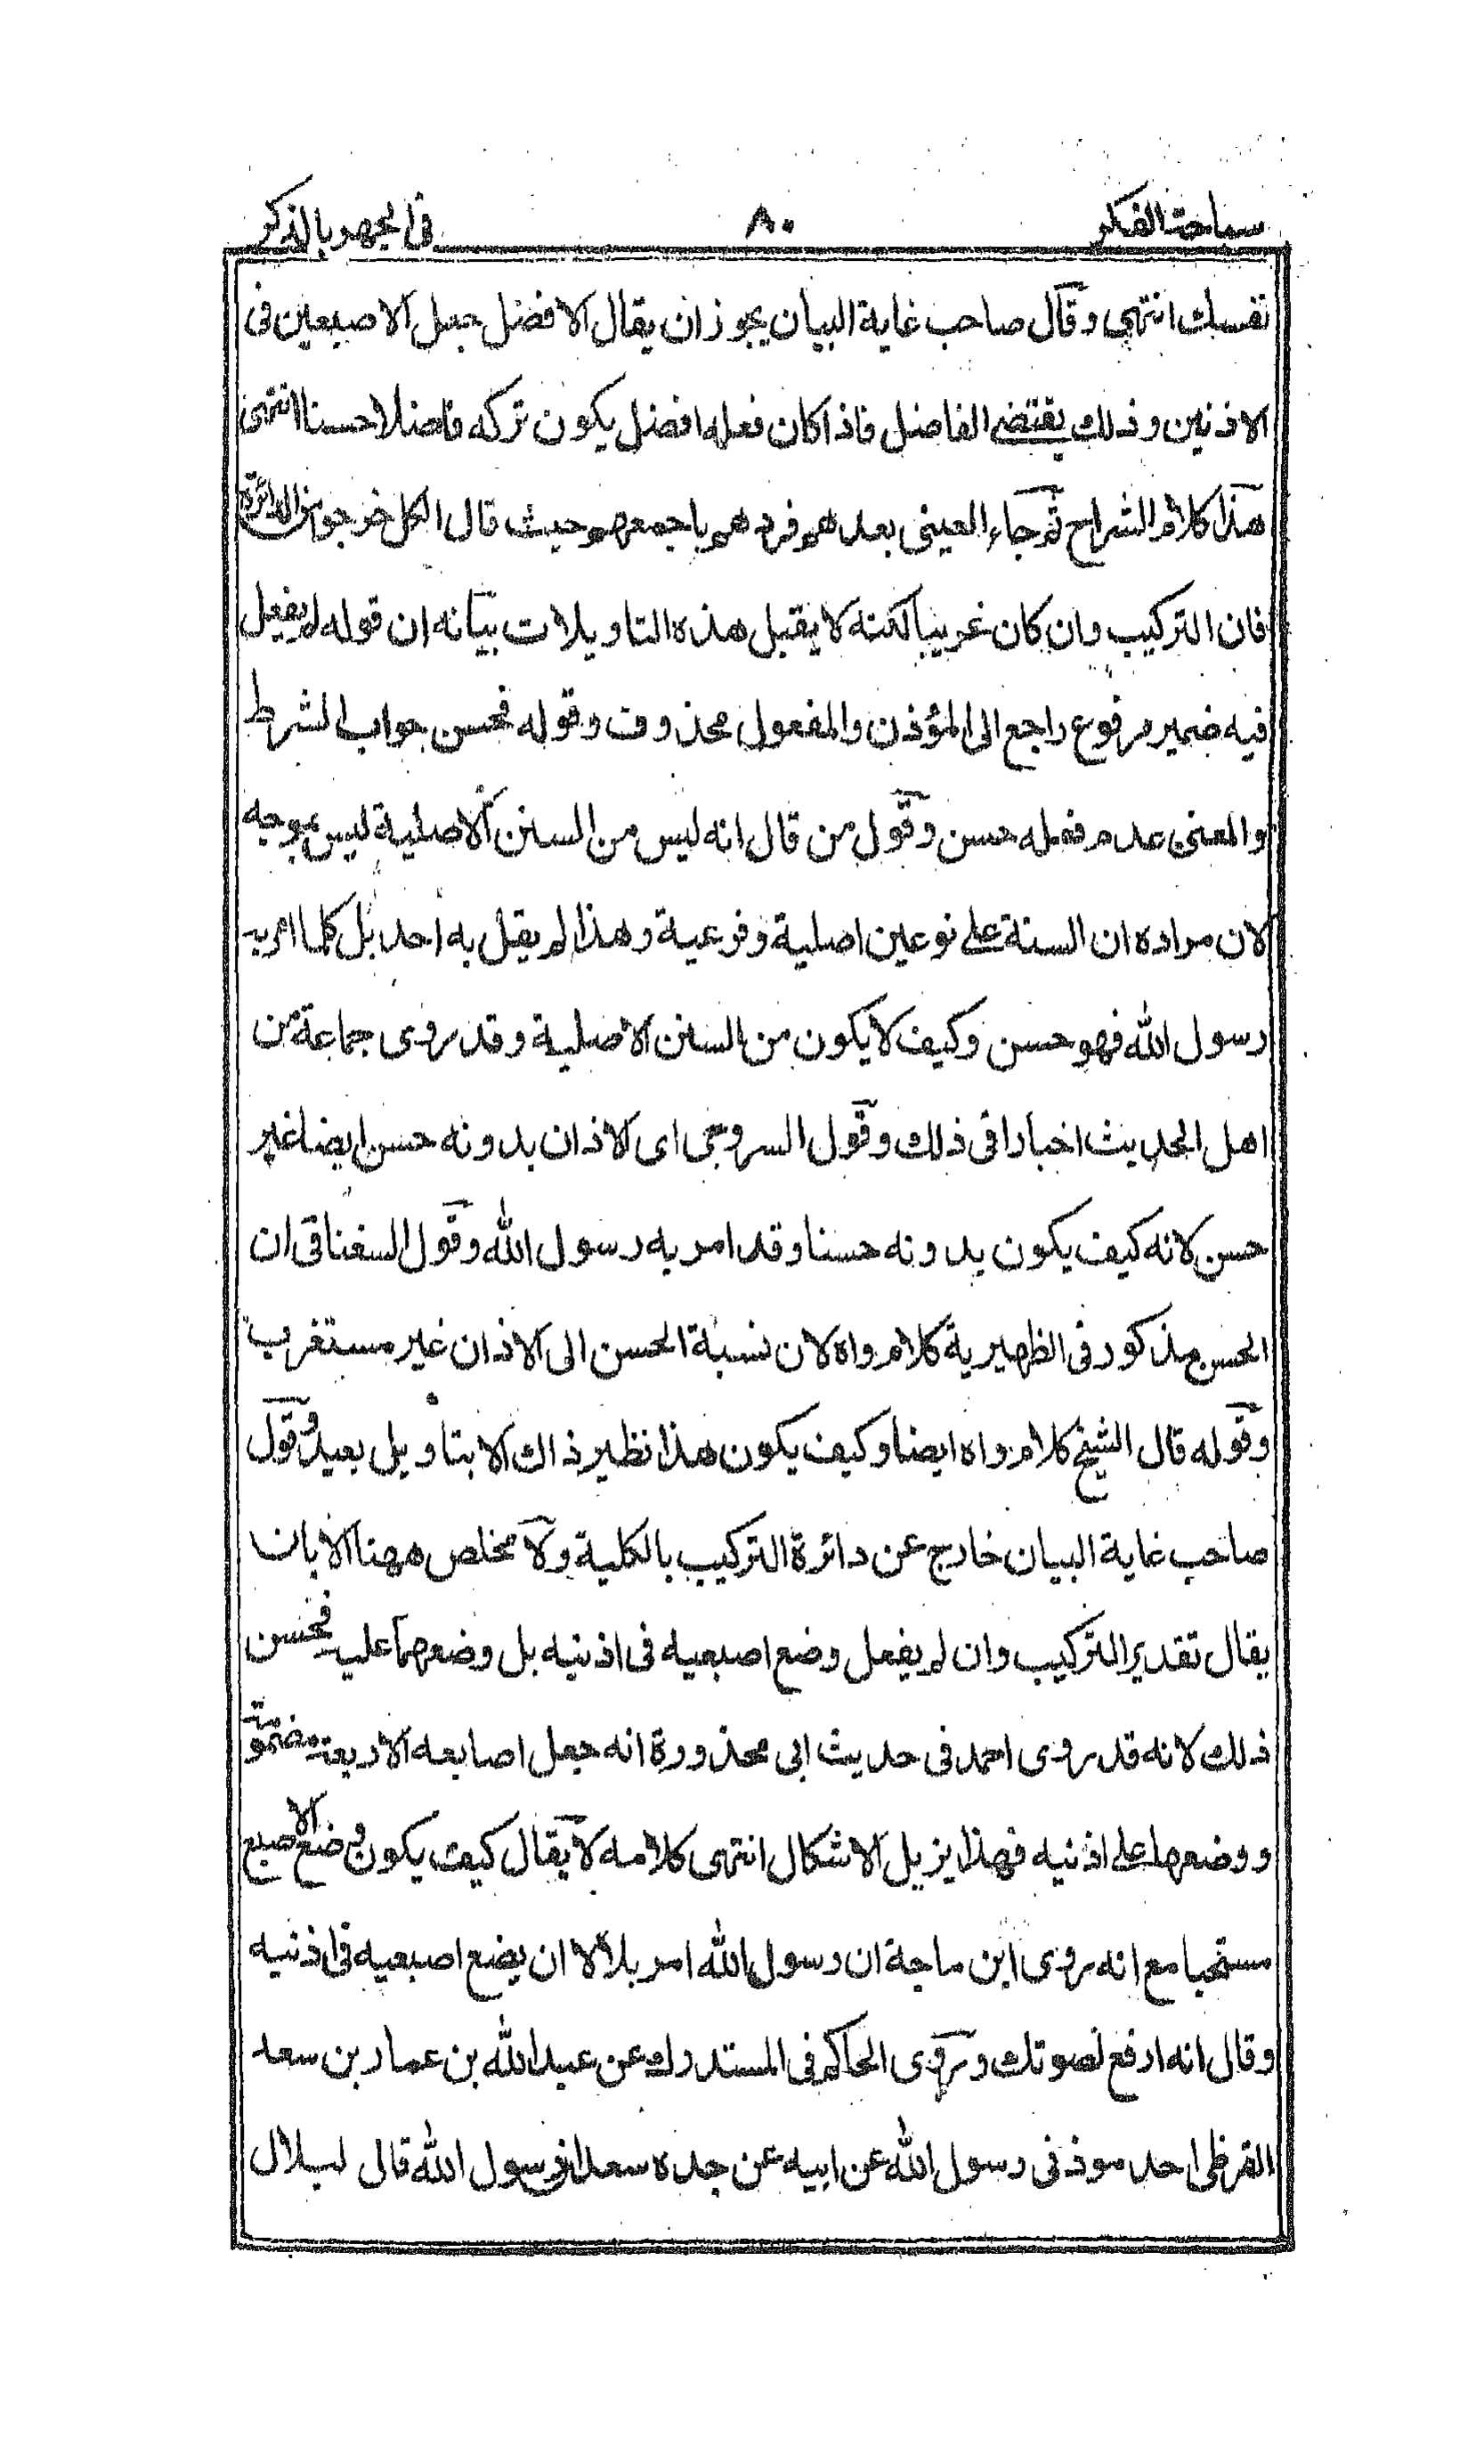 سباحة الفكر ٨٠ فى الجهر بالذكر
نفسك انتهى وقال صاحب غاية البيان يجوز ان يقال الافضل جعل الاصبعين فى
الاذنين وذلك يقتضى الفاضل فاذا كان فعله افضل يكون تركه فاضلا حسنا انتهى
هذا كلام الشراح ثم جاء العينى بعدهم فردهم باجمعهم حيث قال الكل خرجوا من الدائرة
فان التركيب وان كان غريبا لكنه لا يقبل هذه التاويلات بيانه ان قوله لم يفعل
فيه ضمير مرفوع راجع الى المؤذن والمفعول محذوف وقوله فحسن جواب الشرط
والمعنى عدم فعله حسن وقول من قال انه ليس من السنن الاصلية ليس بموجه
لان مراده ان السنة على نوعين اصلية وفرعية وهذا لم يقل به احد بل كلما امر به
رسول الله فهو حسن وكيف لا يكون من السنن الاصلية وقد روى جماعة من
اهل الحديث اخبارا فى ذلك وقول السروجى اى الاذان بدونه حسن ايضا غير
حسن لانه كيف يكون بدونه حسنا وقد امر به رسول الله وقول السغناقى ان
الحسن مذكور فى الظهيرية كلام واه لان نسبة الحسن الى الاذان غير مستغرب
وقوله قال الشيخ كلام واه ايضا وكيف يكون هذا نظير ذاك الا بتاويل بعيد وقول
صاحب غاية البيان خارج عن دائرة التركيب بالكلية ولا مخلص ههنا الا بان
يقال تقدير التركيب وان لم يفعل وضع اصبعيه فى اذنيه بل وضعهما عليه فحسن
ذلك لانه قد روى احمد فى حديث ابى محذورة انه جعل اصابعه الاربعة مضمومة
ووضعها على اذنيه فهذا يزيل الاشكال انتهى كلامه لا يقال كيف يكون وضع الاصبع
مستحبا مع انه روى ابن ماجة ان رسول الله امر بلالا ان يضع اصبعيه فى اذنيه
وقال انه ارفع لصوتك وروى الحاكم فى المستدرك عن عبد الله بن عمار بن سعد
القرظى احد موذنى رسول الله عن ابيه عن جده سعد ان رسول الله قال لبلال